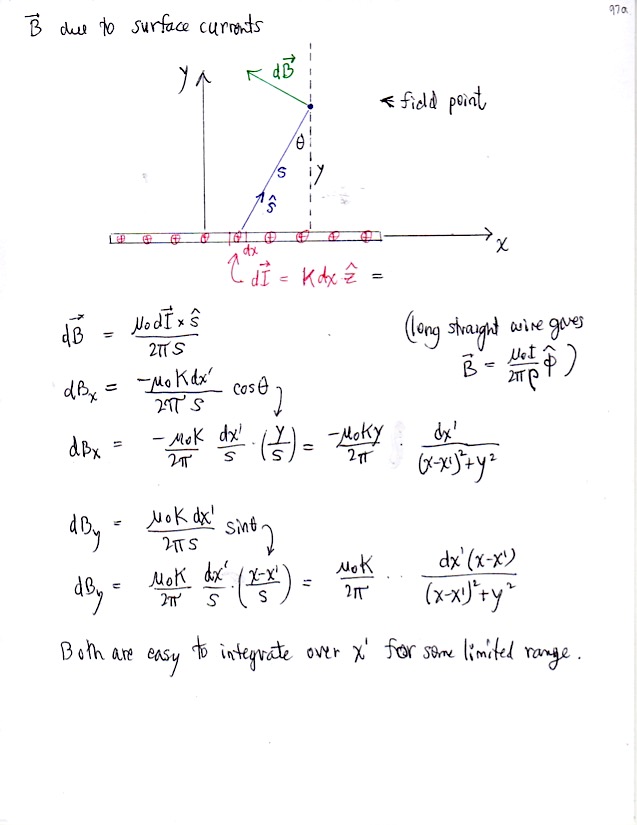 97a
B⃗ due to surface currents
y
dB⃗
← field point
θ
s
y
ŝ
⊕ ⊕ ⊕ ⊕ ⊕ ⊕ ⊕ ⊕ ⊕
x
dx
dI⃗ = K dx ẑ =
dB⃗ = μ₀ dI⃗ × ŝ / 2π s
(long straight wire gives
B⃗ = μ₀I / 2πρ φ̂ )
dBₓ = -μ₀ K dx' / 2π s cosθ
dBₓ = -μ₀K / 2π dx' / s · (y / s) = -μ₀Ky / 2π · dx' / (x-x')² + y²
dB_y = μ₀ K dx' / 2π s sinθ
dB_y = μ₀K / 2π dx' / s · (x-x' / s) = μ₀K / 2π · dx'(x-x') / (x-x')² + y²
Both are easy to integrate over x' for some limited range.